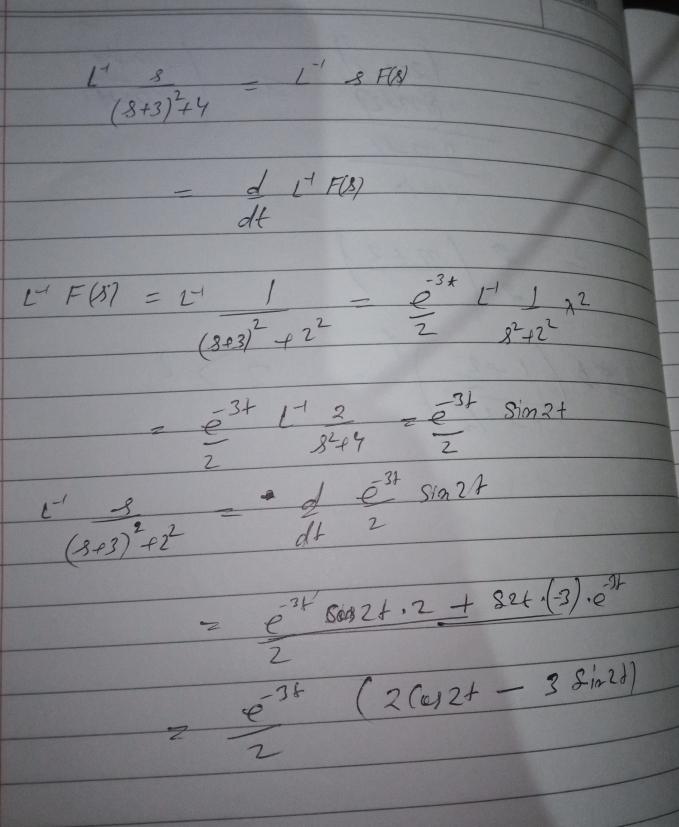 L⁻¹ s/((s+3)²+4) = L⁻¹ s F(s)
= d/dt L⁻¹ F(s)
L⁻¹ F(s) = L⁻¹ 1/((s+3)²+2²) = e⁻³ᵗ/2 L⁻¹ 1/(s²+2²) × 2
= e⁻³ᵗ/2 L⁻¹ 2/(s²+4) = e⁻³ᵗ/2 Sin2t
L⁻¹ s/((s+3)²+2²) = d/dt e⁻³ᵗ/2 Sin2t
= (e⁻³ᵗ Cos2t·2 + S2t·(-3)·e⁻³ᵗ)/2
= e⁻³ᵗ/2 (2Cos2t − 3 Sin2t)